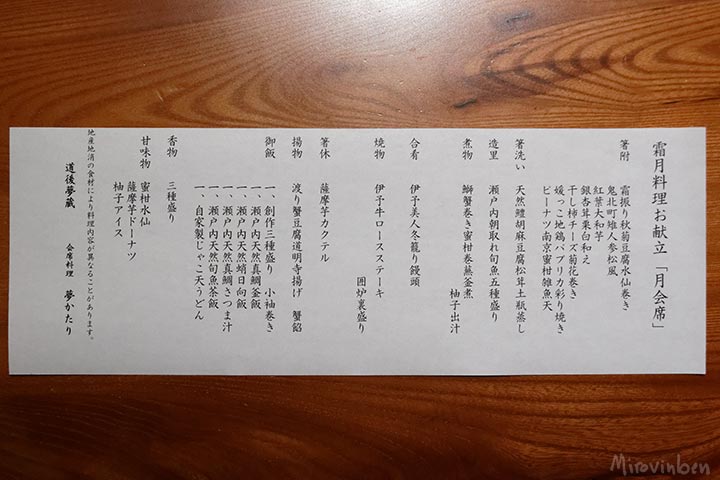 霜月料理お献立「月会席」
箸附 霜振り秋菊豆腐水仙巻き
鬼北町雉人参松風
紅葉大和芋
銀杏茸栗白和え
干し柿チーズ菊花巻き
媛っこ地鶏パプリカ彩り焼き
ピーナツ南京蜜柑雑魚天
箸洗い 天然鱧胡麻豆腐松茸土瓶蒸し
造里 瀬戸内朝取れ旬魚五種盛り
煮物 鰤蟹巻き蜜柑巻蕪釜煮
柚子出汁
合肴 伊予美人冬籠り饅頭
焼物 伊予牛ロースステーキ
囲炉裏盛り
箸休 薩摩芋カクテル
揚物 渡り蟹豆腐道明寺揚げ 蟹餡
御飯 一、創作三種盛り 小袖巻き
一、瀬戸内天然真鯛釜飯
一、瀬戸内天然蛸日向飯
一、瀬戸内天然真鯛さつま汁
一、瀬戸内天然旬魚茶飯
一、自家製じゃこ天うどん
香物 三種盛り
甘味物 蜜柑水仙
薩摩芋ドーナツ
柚子アイス
地産地消の食材により料理内容が異なることがあります。
道後夢蔵 会席料理 夢かたり
Mirovinben